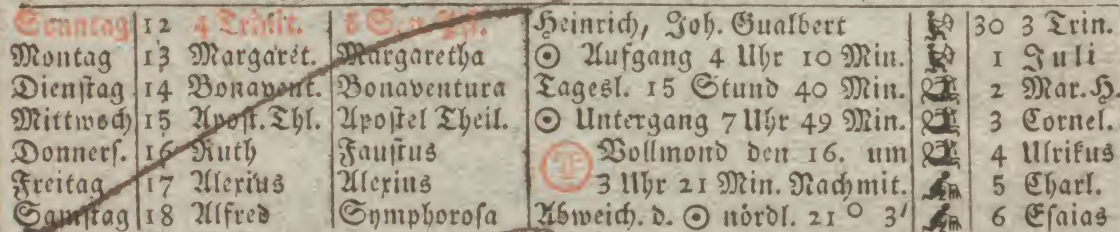 Sonntag 12 4 Trinit. 6 S.n. Pf. Heinrich, Joh. Gualbert 30 3 Trin.
Montag 13 Margaret. Margaretha ☉ Aufgang 4 Uhr 10 Min. 1 Juli
Dienſtag 14 Bonavent. Bonaventura Tagesl. 15 Stund 40 Min. 2 Mar. H.
Mittwoch 15 Apoſt. Thl. Apoſtel Theil. ☉ Untergang 7 Uhr 49 Min. 3 Cornel.
Donnerſ. 16 Ruth Fauſtus Vollmond den 16. um 4 Ulrikus
Freitag 17 Alexius Alexius 3 Uhr 21 Min. Nachmit. 5 Charl.
Samſtag 18 Alfred Symphoroſa Abweich. d. ☉ nördl. 21° 3′ 6 Eſaias